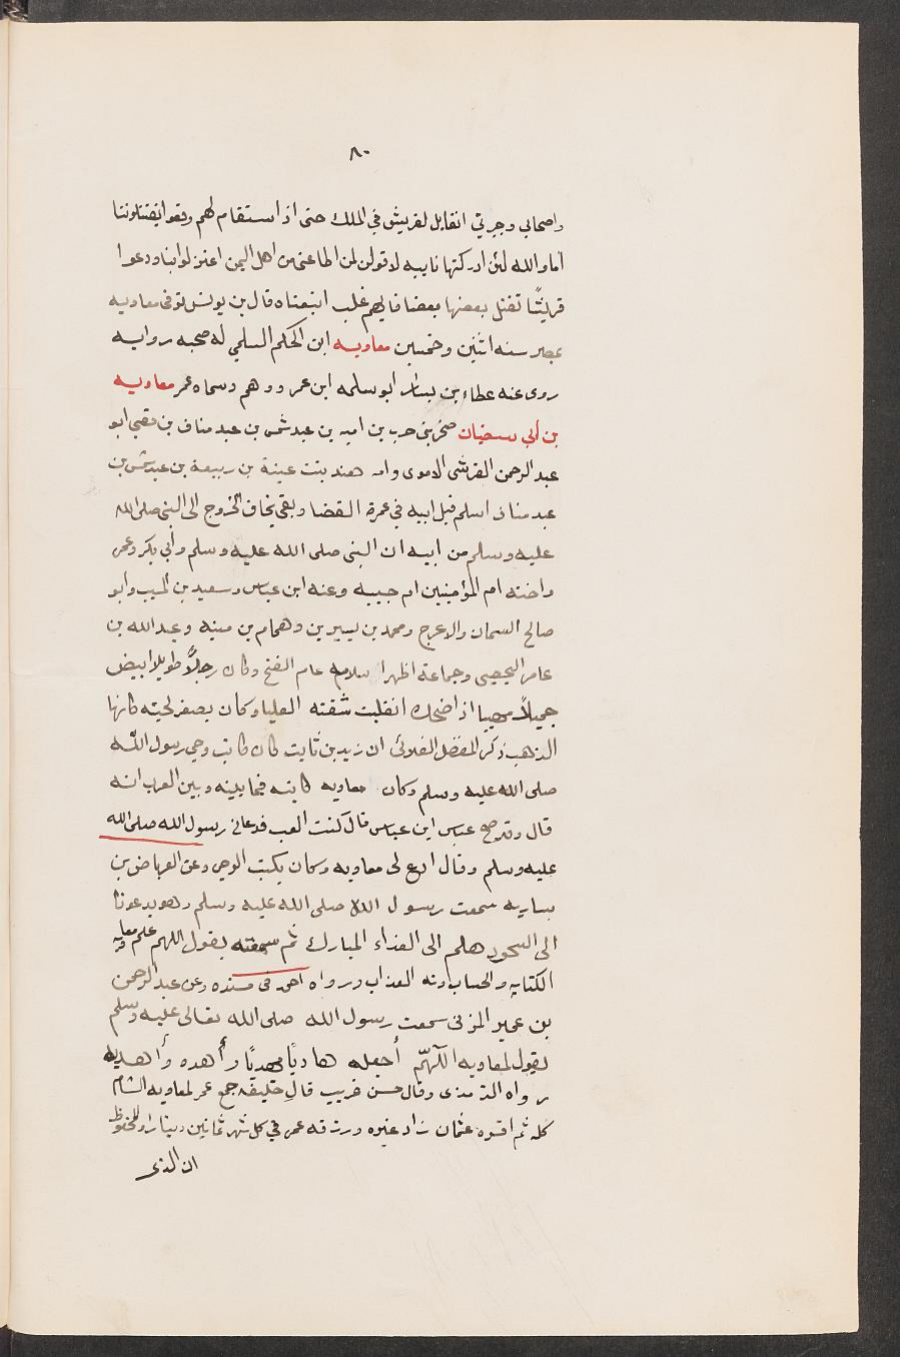 ٨٠
واصحابي وجرتي انقابل لقريش في الملك حتى اذا استقام لهم وقعوا يقتتلوننا
اما والله لئن ادركتها نابيه لا قولن لمن اطاعني من اهل اليمن اعتزلوا بنا ودعوا
قريشًا تقتل بعضها بعضا فايهم غلب اتبعناه قال بن يونس توفي معاويه
بمصر سنه اثنين وخمسين معاويه ابن الحكم السلمي له صحبه روايه
روى عنه عطاء بن يسار ابو سلمه ابن عمر ووهم وسماه عمر معاويه
بن أبي سفيان صخر بن حرب بن اميه بن عبد شمس بن عبد مناف بن قصي ابو
عبد الرحمن القرشي الاموى وامه هند بنت عيتة بن ربيعة بن عبد شمس بن
عبد مناف اسلم قبل ابيه في عمرة القضا وبقي يخاف الخروج الى النبي صلى الله
عليه وسلم من ابيه ان النبي صلى الله عليه وسلم وابي بكر وعمر
واخته ام المؤمنين ام حبيبه وعنه ابن عباس وسعيد بن المسيب وابو
صالح السمان والاعرج ومحمد بن سيرين وهمام بن منبه وعبد الله بن
عامر اليحصبي وجماعة اظهر اسلامه عام الفتح وكان رجلًا طويلا ابيض
جميلًا مهيبا اذا ضحك انقلبت شفته العليا وكان يصفر لحيته كانها
الذهب ذكر المفضل الغلابي ان زيد بن ثابت كان كاتب وحي رسول الله
صلى الله عليه وسلم وكان معاويه كاتبه فيما بينه وبين العرب انه
قال وقد صح عباس ابن عباس قال كنت العب فدعاني رسول الله صلى الله
عليه وسلم وقال ادع لي معاويه وكان يكتب الوحي وعن العرباض بن
ساريه سمعت رسول الله صلى الله عليه وسلم وهو يدعونا
الى السحور هلم الى الغذاء المبارك ثم سمعته يقول اللهم علم معاويه
الكتابه والحساب وقه العذاب ورواه احمد في مسنده وعن عبد الرحمن
بن عمير المزني سمعت رسول الله صلى الله تعالى عليه وسلم
يقول لمعاويه اللّهمّ أجعله هاديًا مهديًا وأهده وأهد به
رواه الترمذى وقال حسن غريب قال خليفه جمع عمر لمعاويه الشام
كله ثم اقره عثمان زاد غيره ورزقه عمر في كل شهر ثمانين دينارا والمحفوظ
ان الذى